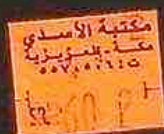 مكتبة الأسدي
مكة - العزيزية
ت: ٥٥٧٠٥٠٦